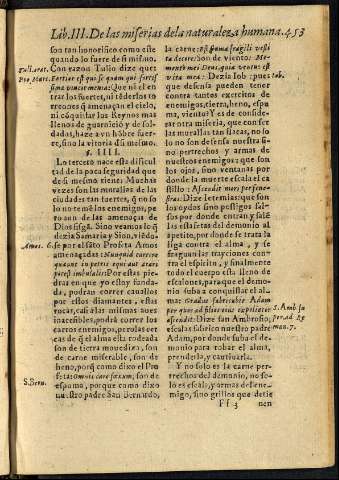 Lib. III. De las miserias de la naturaleza humana. 453
son tan honorifico como este
quando lo fuere de si mismo.
Con razon Tulio dize que
Fortior est qui se quàm qui fortis
sima vincit mœnia: Que nì el en
trar los fuertes, ni
rreones q̃ amenaçan el cielo,
ni conquistar los Reynos mas
llenos de guarnició y de sol-
dados, haze a vn hõbre fuer-
re, sino la vitoria d si mismo.
§. IIII.
Lo tercero nace esta dificul
tad de la poca seguridad que
de si mismo tiene: Muchas
vezes son las murallas de las
ciudades tan fuertes, q̃ no so
lo no temẽ los enemigos, pe
ro aun de las amenaças de
Dios
dezia Samaria y Sion,
Amos. 6.
se por el sãto Profeta Amos
amenaçadas:
Por estas pie
dras en que yo estoy funda-
da, podran correr cauallos
por estos diamantes, estas
rocas, casi a las mismas aues
inaccessibles, podrá correr los
carros enemigos, pero las cer
cas de q̃ el alma esta rodeada
son de tierra mouediza, son
de carne miserable, son de
heno, porq̃ como dixo el Pro
feta: Omnis caro fœnum; son de
S. Bern.
espuma, porque como dixo
nuestro padre San Bernardo,
la carne: est spuma fragili vesti
ta decore: Son de viento: Me-
mento mei Deus, quia ventus est
vita mea: Dezia Iob: pues
Iob.
que defensa pueden tener
contra tantos exercitos de
enemigos, tierra, heno, espu
ma, viento? Y es de conside-
rar nuestra miseria, que con ser
las murallas tan flacas, no so
lo no son defensa nuestra si-
no pertrechos y armas de
nuestros enemigos: que son
los ojos, sino ventanas por
donde la muerte escala el ca
stillo: Ascendit mors per fenes-
tras: Dize Ieremias: que son
los oydos sino postigos fal-
sos por donde entran y salẽ
las estafetas del demonio al
apetito, por donde se trata la
liga contra el alma, y se
fraguan las trayciones con-
tra el espiritu, y finalmente
todo el cuerpo esta lleno de
escalones, para que el demo-
nio suba a conquistar el al-
ma: Gradus fabricabat Adam
per quos ad filium eius
ascendit: Dize San Ambrosio,
escalas fabrico nuestro padre
Adam, por donde suba el de-
monio para robar el alma,
prenderla, y cautiuarla.
Y no solo es la carne per-
trechos del demonio, no so-
lo es escala, y armas del ene-
migo, sino grillos que detie
Ff 3
nen